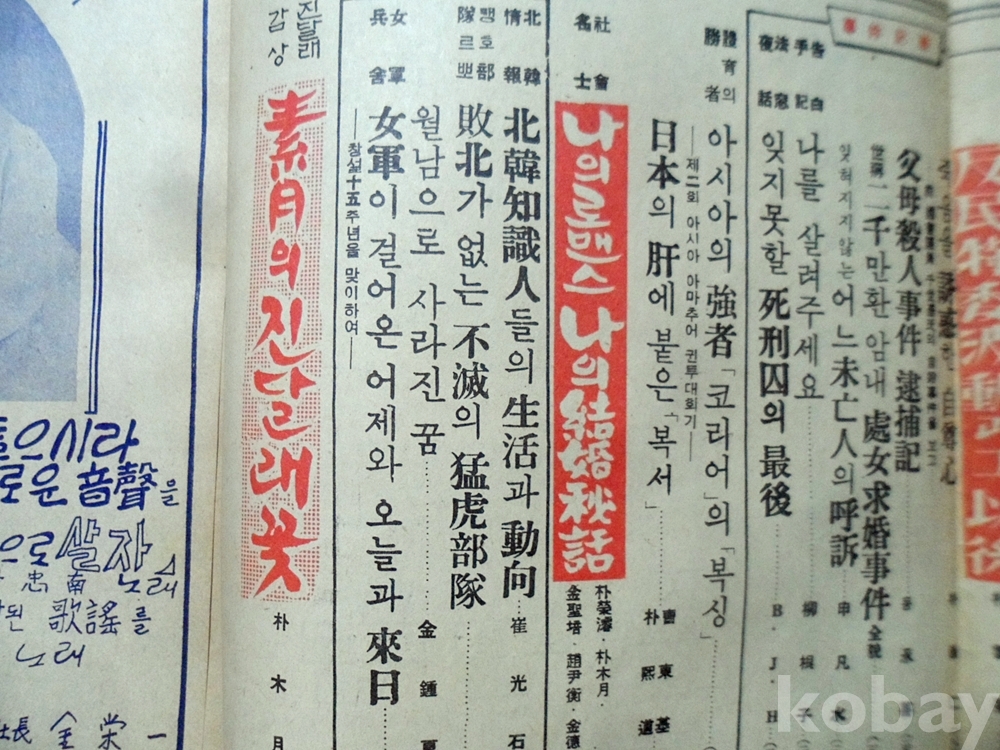 事件
父母殺人事件 逮捕記
世稱 二千만환 암내 處女求婚事件 全貌
잊혀지지 않는 어느 未亡人의 呼訴 申
告白手記
나를 살려주세요 柳
法窓夜話
잊지못할 死刑囚의 最後 B・J・H
體育의 勝者
아시아의 强者「코리어」의「복싱」
―제二회 아시아 아마추어 권투대회기― 曺東基
日本의 肝에 붙은「복서」 朴熙道
社會名士
나의 로맨스 나의 結婚秘話
朴榮濬・朴木月・
金聖培・趙尹衡・金德
北韓情報
北韓知識人들의 生活과 動向 崔光石
맹호部隊르뽀
敗北가 없는 不滅의 猛虎部隊
월남으로 사라진 꿈 金鍾
女軍兵舍
女軍이 걸어온 어제와 오늘과 來日
―창설十五주년을 맞이하여―
진달래 감상
素月의 진달래꽃 朴木月
으시라
로운 音聲을
으로 살자
忠南 노래
된 歌謠를
노래
社長 金榮一
kobay